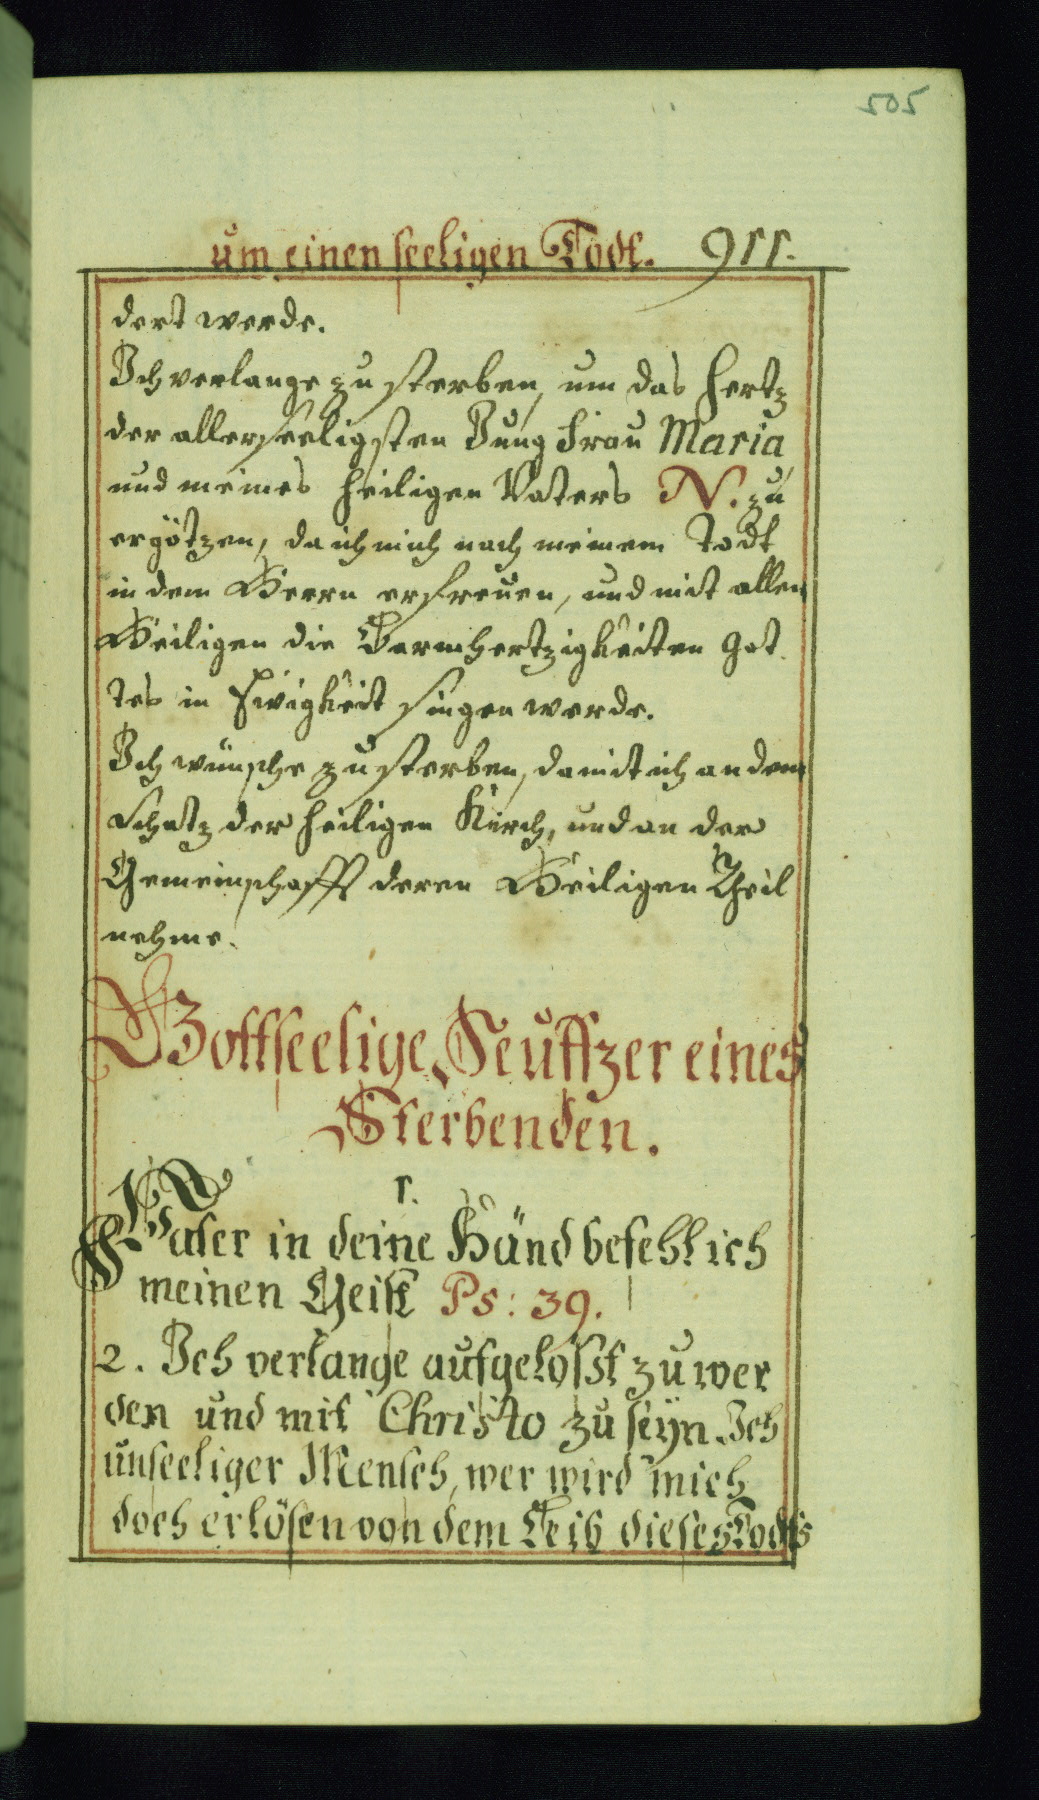 505
um einen seeligen Todt. 911.
dert werde.
Ich verlange zu sterben, um das Hertz
der allerseeligsten Jung Frau Maria
und meines heiligen Vaters N. zu
ergötzen, da ich mich nach meinem Todt
in dem Herrn erfreuen, und mit allen
Heiligen die Barmhertzigkeiten Got
tes in Ewigkeit singen werde.
Ich wünsche zu sterben, damit ich an dem
Schatz der heiligen Kirch, und an der
Gemeinschafft deren Heiligen Theil
nehme.
Gottseelige Seuffzer eines
Sterbenden.
1.
Vater in deine Händ befehl ich
meinen Geist Ps: 39.
2. Ich verlange aufgelößt zu wer
den und mit Christo zu seÿn. Ich
unseeliger Mensch, wer wird mich
doch erlösen von dem Leib dieses Todts